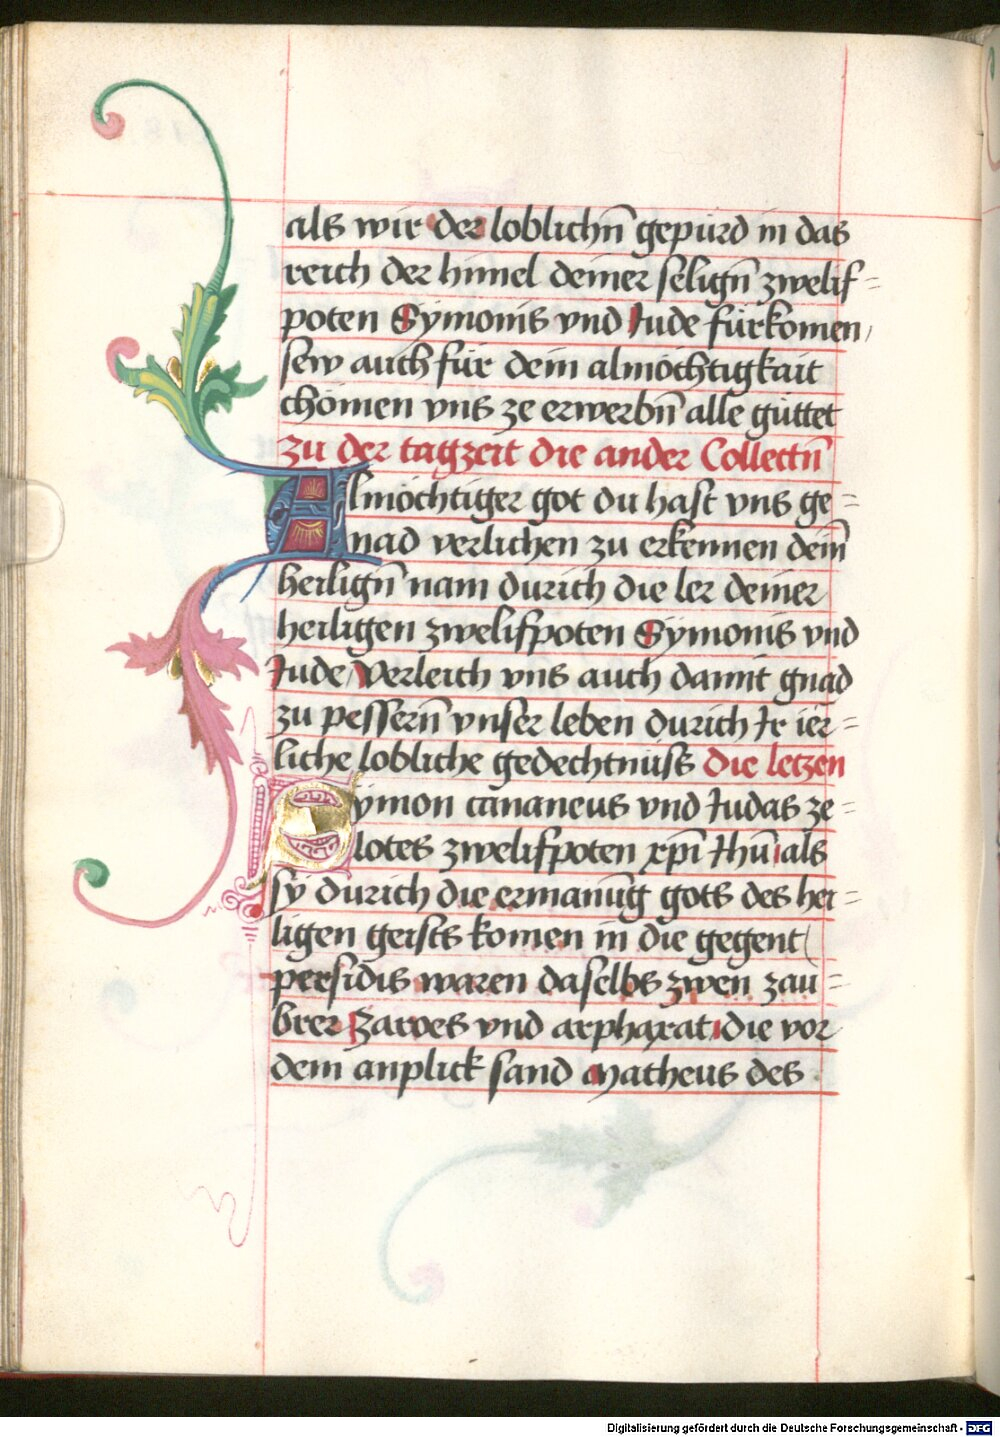 als wir der loblichn̄ gepurd in das
reich der himel deiner selign̄ zwelif=
poten Symonis vnd Jude fürkomen,
sew auch für dein almöchtigkait
chömen vns ze erwerbn̄ alle güttet
zu der tagzeit die ander Collectn̄
Almöchtiger got du hast vns ge=
nad verlichen zu erkennen dein̄
heilign̄ nam durich die ler deiner
heiligen zwelifpoten Symonis vnd
Jude, Verleich vns auch damit gnad
zu pessern̄ vnser leben durich Ir ier=
liche lobliche gedechtnuss die letzen
Symon cananeus vnd Judas ze=
lotes zwelifpoten xp̄i Ihū als
sy durich die ermanūg gots des hei=
ligen geists komen in die gegent
persidis waren daselbs zwen zau=
brer Zaroes vnd arphaxat die vor
dem anplick sand Matheus des
Digitalisierung gefördert durch die Deutsche Forschungsgemeinschaft - DFG